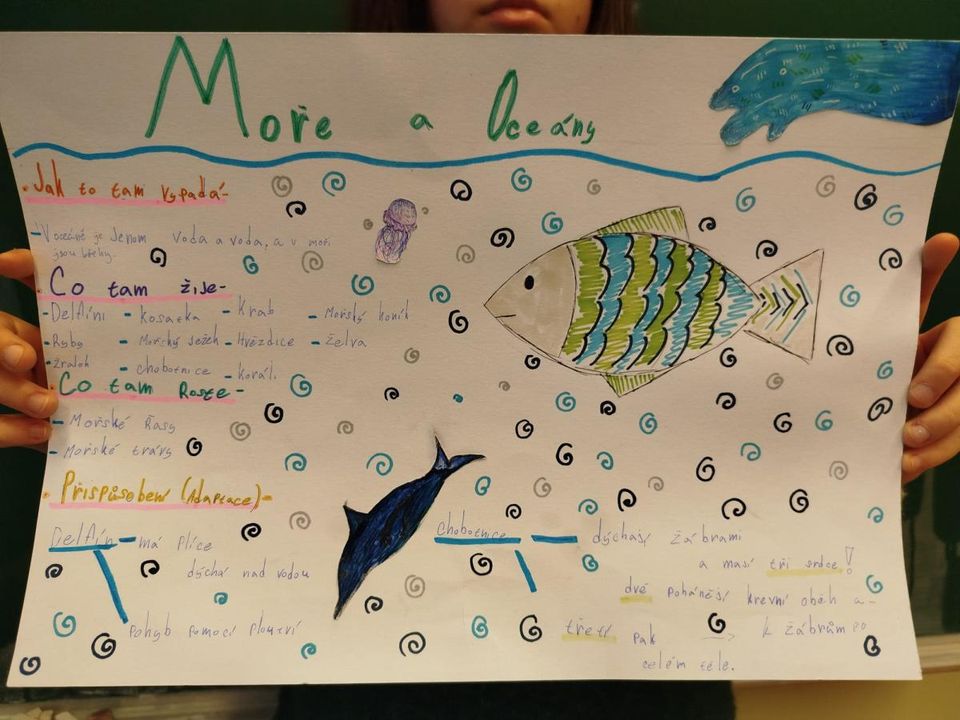 Moře a Oceány
• Jak to tam vypadá-
- V oceáně je Jenom voda a voda, a v moři
jsou břehy.
• Co tam žije-
- Delfíni - kosatka - Krab - Mořský koník
- Ryby - Mořský ježek - Hvězdice - želva
- žralok - chobotnice - korál.
• Co tam Roste-
- Mořské Řasy
- Mořské trávy
• Přispůsobení (Adaptace)-
Delfín - má plíce
dýchá nad vodou
Pohyb pomocí ploutví
chobotnice - dýchají žábrami
a mají tři srdce!
dvě pohánějí krevní oběh a-
třetí pak → k žábrům po
celém těle.